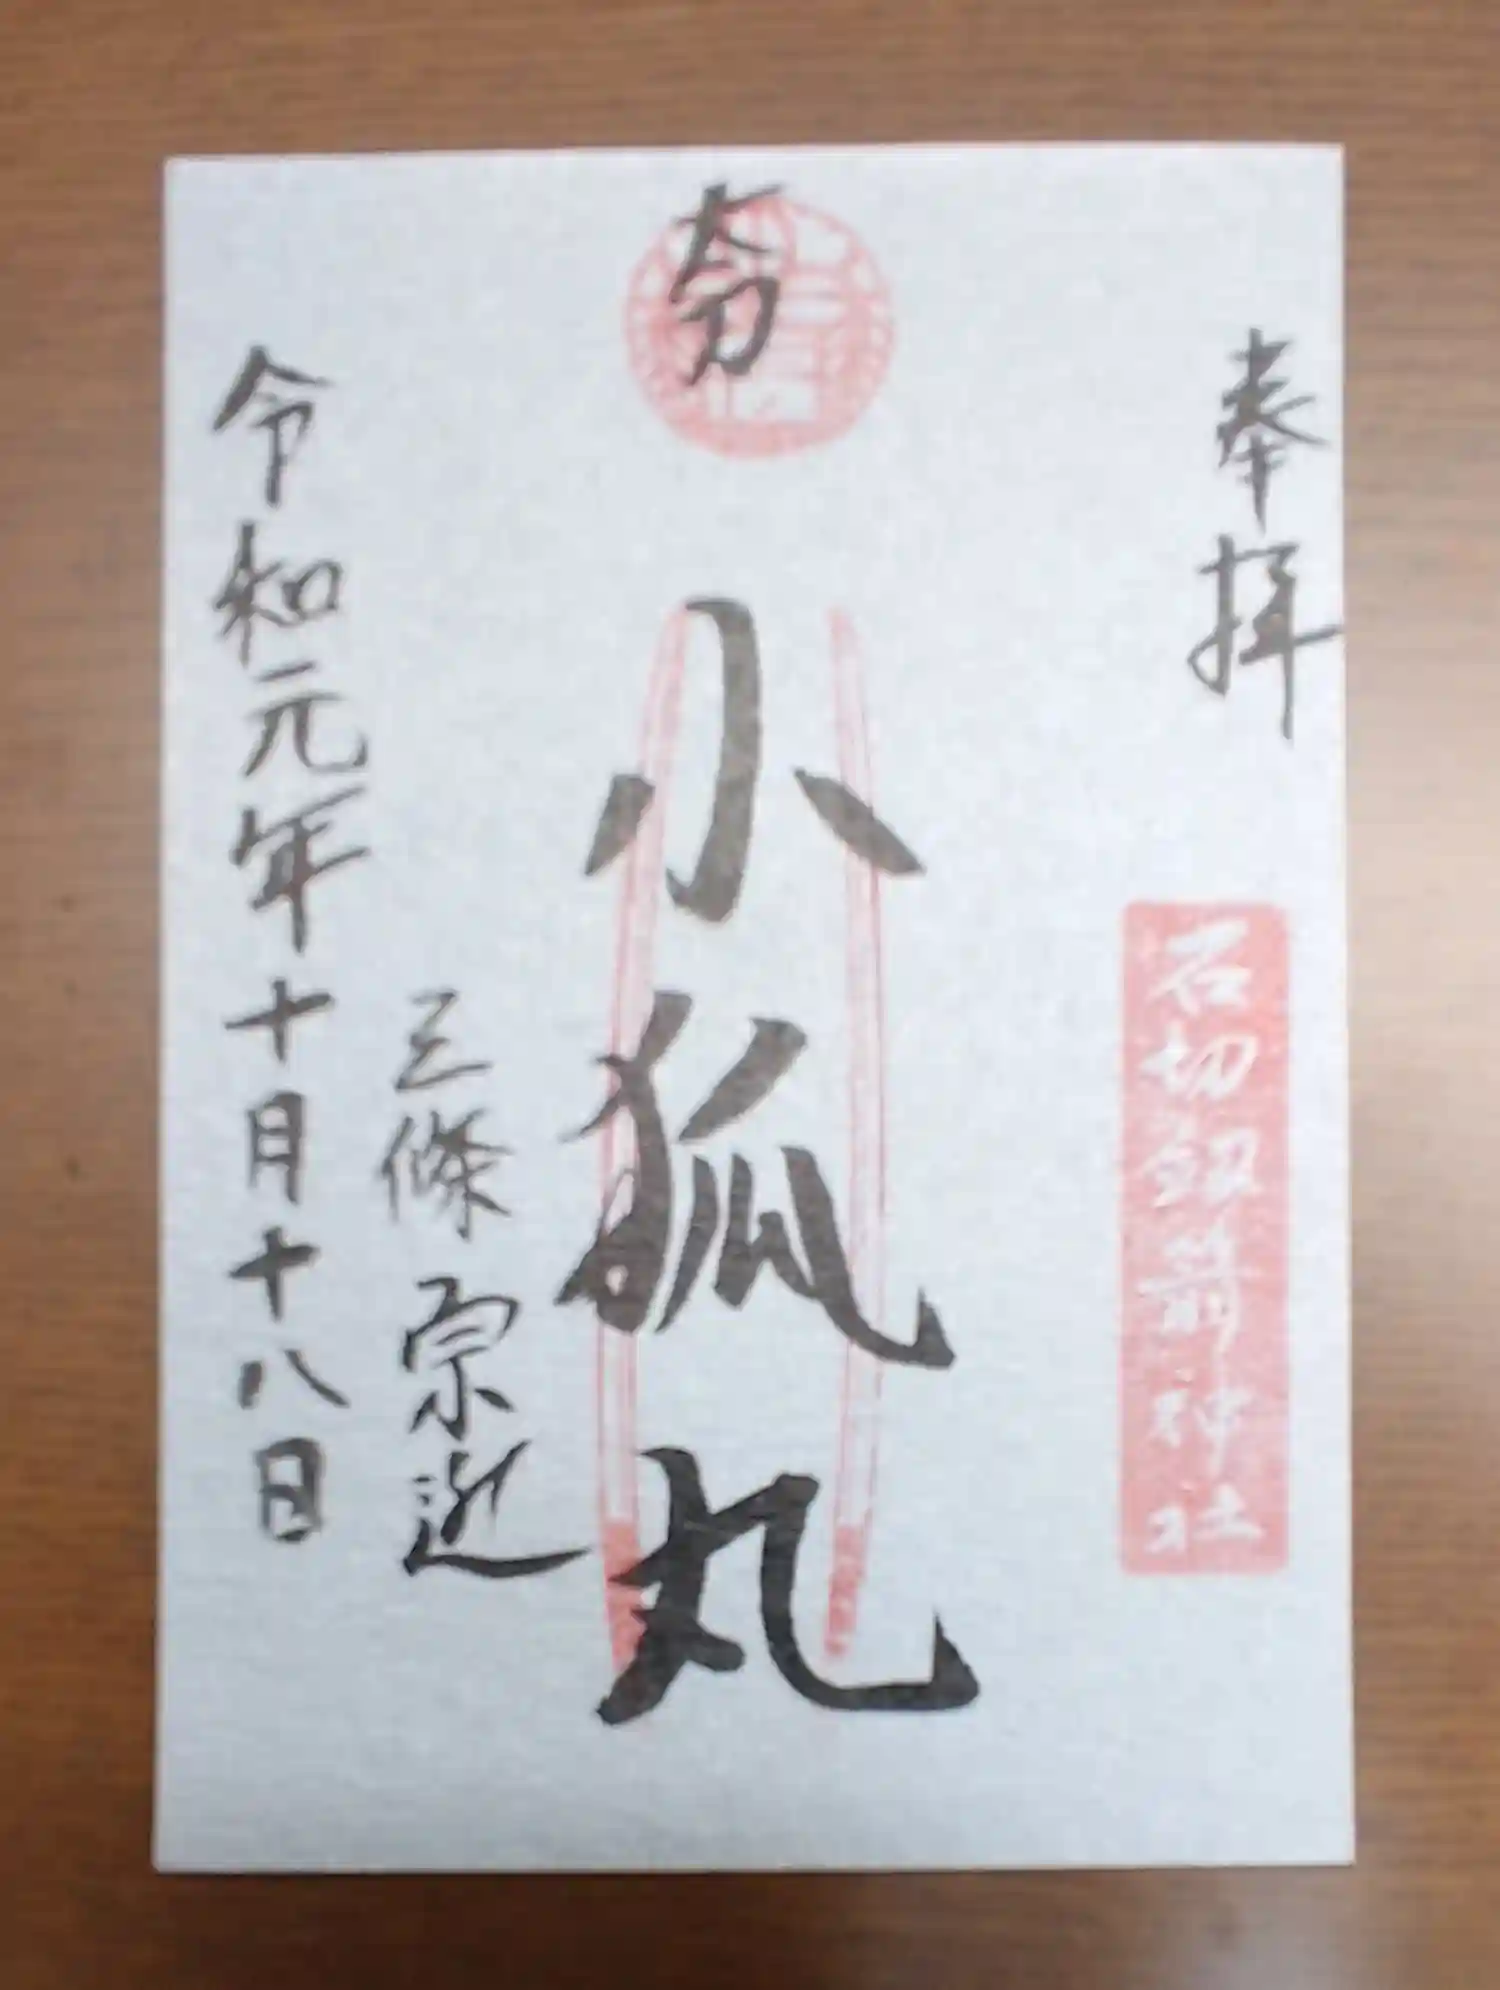 奉拝
石切劔箭神社
小狐丸
三條宗近
令和元年十月十八日